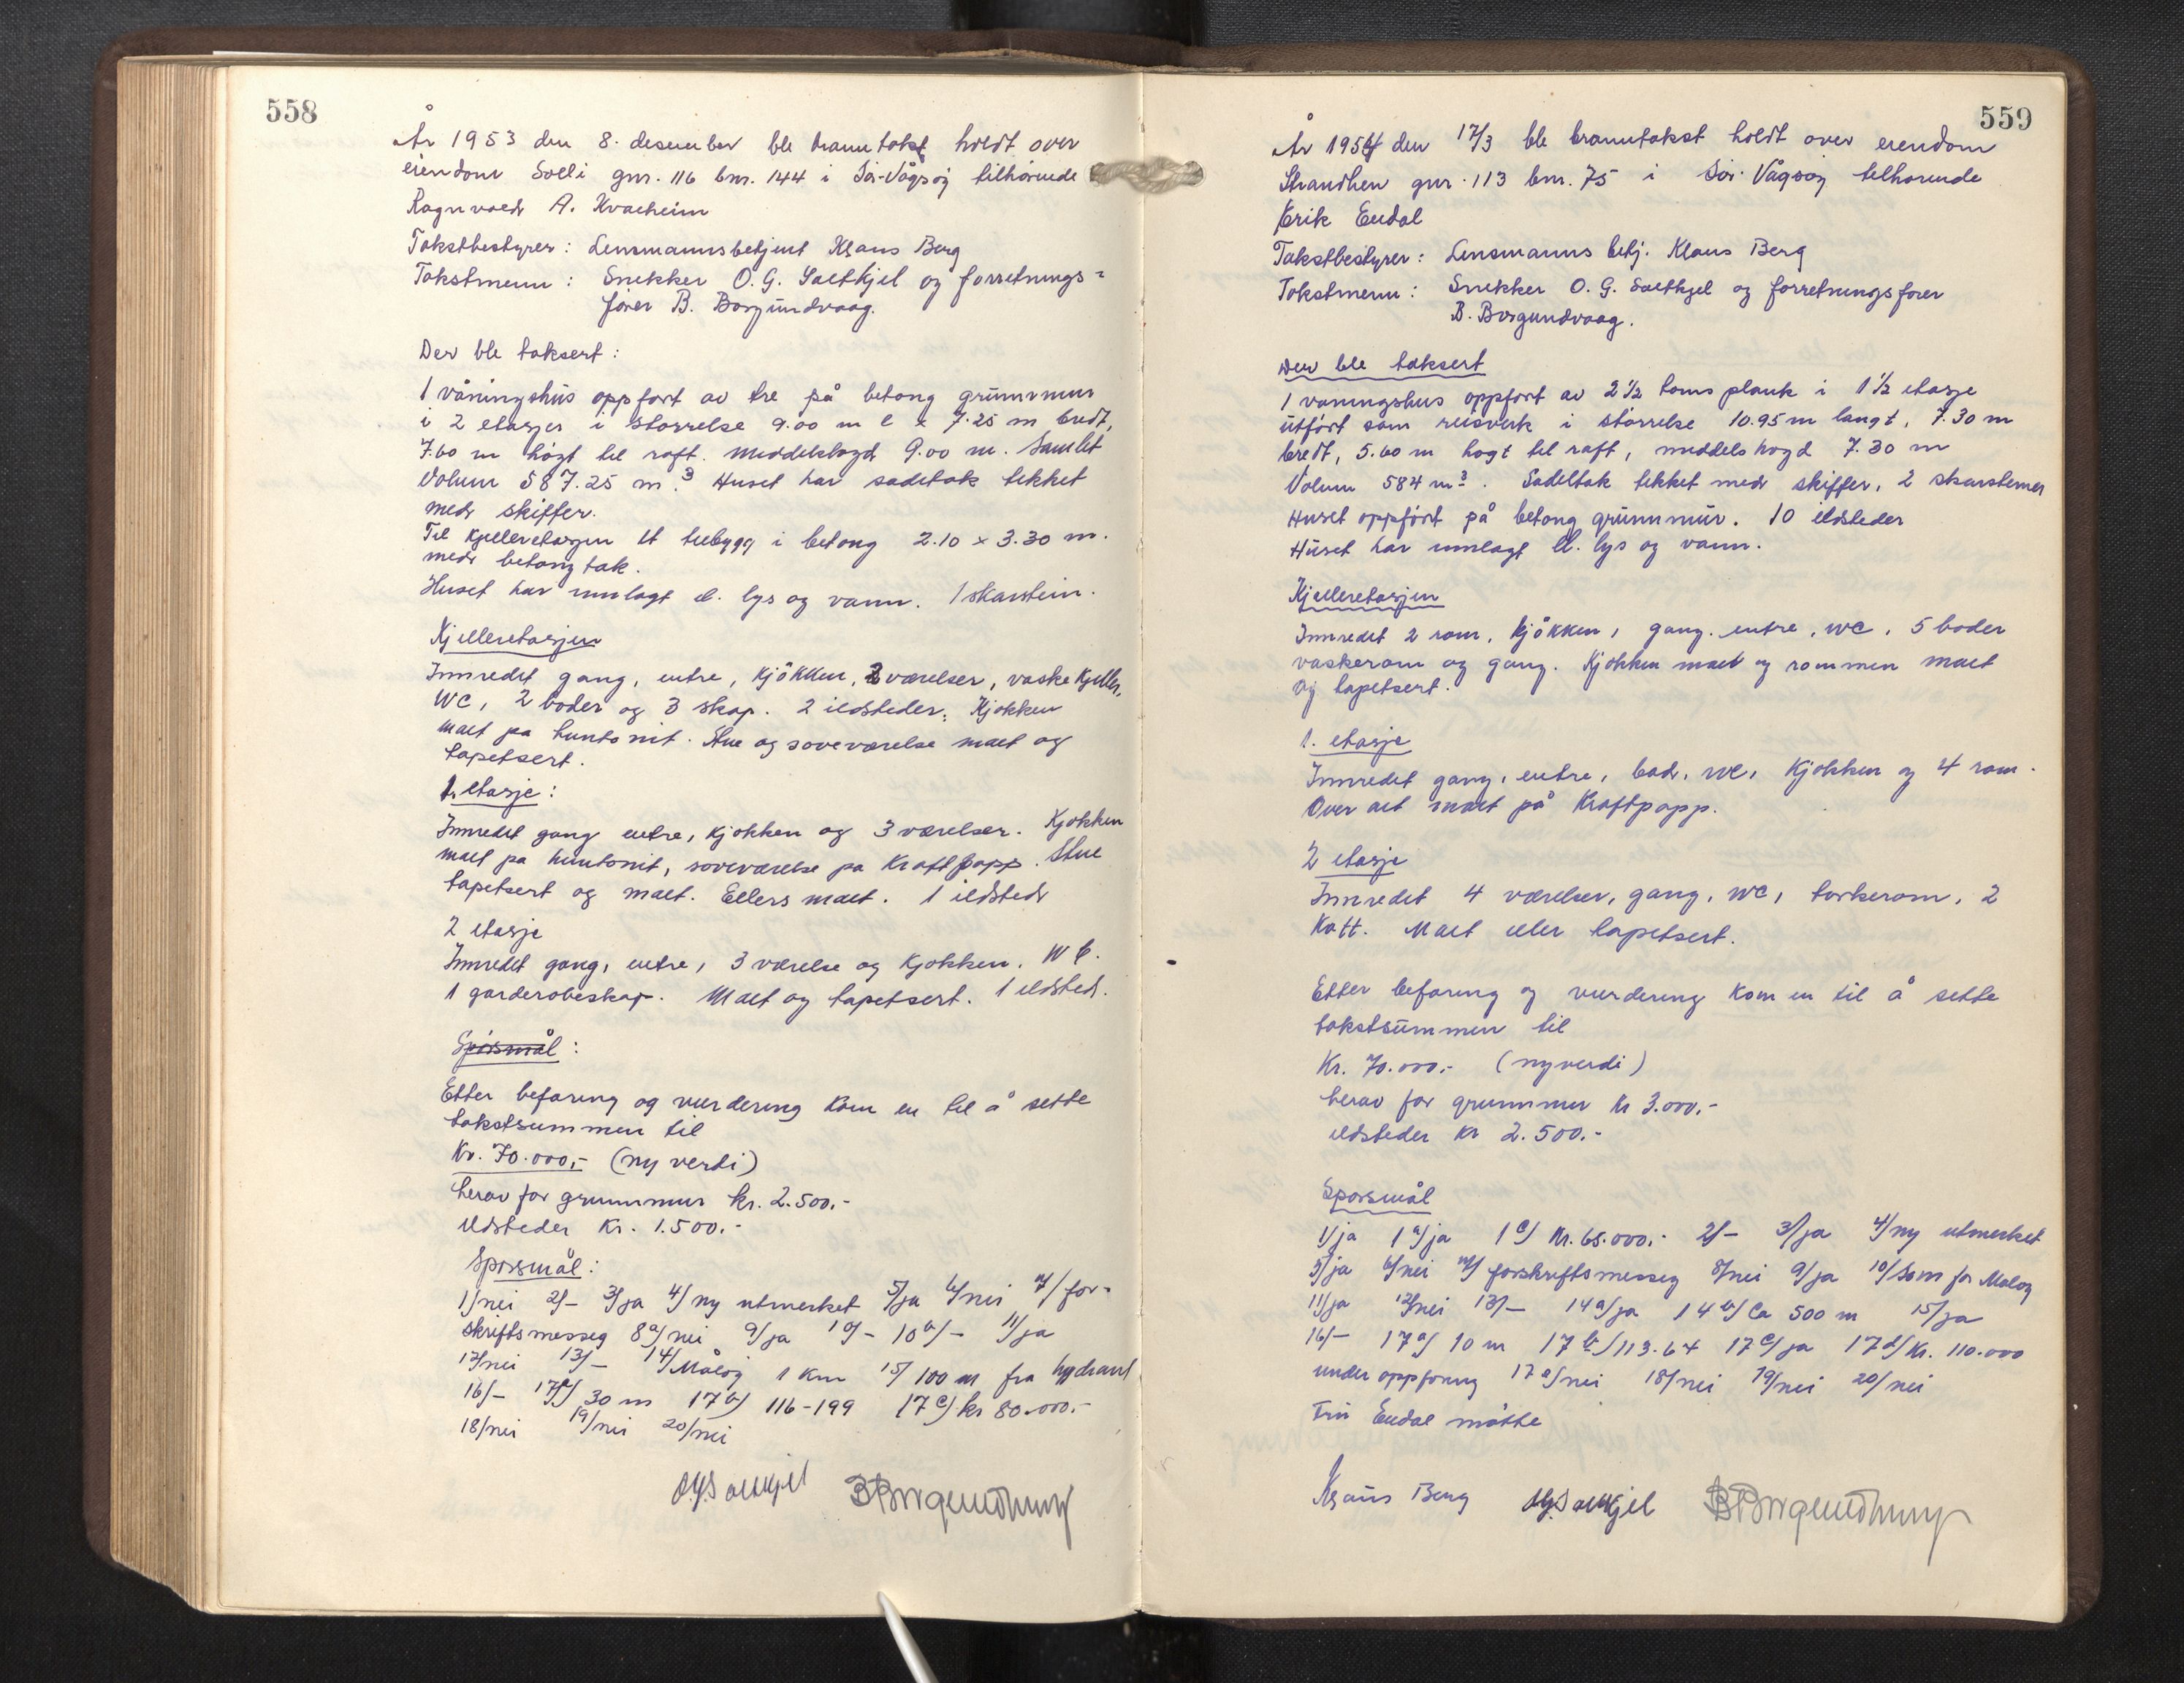 558
År 1953 den 8. desember ble branntakst holdt over
eiendom Solli gnr. 116 bnr. 144 i Sør-Vågsøy tilhørende
Ragnvald A. Kvalheim
Takstbestyrer: Lensmannsbetjent Klaus Berg
Takstmenn: Snekker O. G. Saltkjel og forretnings-
fører B. Borgundvaag.
Der ble taksert:
1 våningshus oppført av tre på betong grunnmur
i 2 etasjer i størrelse 9.00 m l x 7.25 m bredt,
7.60 m høgt til raft. Middelshøgd 9.00 m. Samlet
Volum 587.25 m.³ Huset har sadeltak tekket
med skiffer.
Til kjelleretasjen et tilbygg i betong 2.10 x 3.30 m.
med betongtak.
Huset har innlagt el. lys og vann. 1 skorstein.
Kjelleretasjen
Innredet gang, entre, kjøkken, 2 værelser, vaskekjeller,
WC, 2 boder og 3 skap. 2 ildsteder. Kjøkken
malt på huntonit. Stue og soveværelse malt og
tapetsert.
1. etasje:
Innredet gang entre, kjøkken og 3 værelser. Kjøkken
malt på huntonit, soveværelse på Kraftpapp. Stue
tapetsert og malt. Ellers malt. 1 ildsted
2 etasje
Innredet gang, entre, 3 værelse og kjøkken. WC.
1 garderobeskap. Malt og tapetsert. 1 ildsted.
Spørsmål:
Etter befaring og vurdering kom en til å sette
takstsummen til
Kr. 70.000,- (ny verdi)
herav for grunnmur kr. 2.500.-
ildsteder kr. 1.500.-
Spørsmål:
1/nei 2/- 3/ja 4/ny utmerket 5/ja 6/nei 7/for-
skriftsmesseg 8a/nei 9/ja 10/- 10b/- 11/ja
12/nei 13/- 14/Måløy 1 km 15/ 100 m fra hydrant
16/- 17a/ 30 m 17b/ 116-199 17c/ kr 80.000.-
18/nei 19/nei 20/nei
O.G. Saltkjel B Borgundvaag
559
År 1954 den 17/3 ble branntakst holdt over eiendom
Strandhen gnr. 113 bnr. 75 i Sør-Vågsøy tilhørende
Erik Endal
Takstbestyrer: Lensmanns betj. Klaus Berg
Takstmenn: Snekker O. G. Saltkjel og forretningsfører
B. Borgundvaag.
Der ble taksert
1 våningshus oppført av 2 1/2 toms plank i 1 1/2 etasje
utført som reisverk i størrelse 10.95 m langt, 7.30 m
bredt, 5.60 m høgt til raft, middels høgd 7.30 m
Volum 584 m³. Sadeltak tekket med skiffer, 2 skorsteiner
Huset oppført på betong grunnmur. 10 ildsteder
Huset har innlagt el. lys og vann.
Kjelleretasjen
Innredet 2 rom, kjøkken, gang. entre, WC, 5 boder
vaskerom og gang. Kjøkken malt og rommen malt
og tapetsert.
1. etasje
Innredet gang, entre, bad, WC, kjøkken og 4 rom.
Over alt malt på Kraftpapp.
2 etasje
Innredet 4 værelser, gang, WC, tørkerom, 2
kott. Malt eller tapetsert.
Etter befaring og vurdering kom en til å sette
takstsummen til
Kr. 70.000,- (nyverdi)
herav for grunnmur kr 3.000,-
ildsteder kr 2.500.-
Spørsmål
1/ja 1a/ja 1c/ Kr. 65.000.- 2/- 3/ja 4/ny utmerket
5/ja 6/nei 7/ forskriftsmesseg 8/nei 9/ja 10/Som for Måløy
11/ja 12/nei 13/- 14a/ja 14b/ Ca 500 m 15/ja
16/- 17a/ 10 m 17b/113.64 17c/ja 17d/Kr. 110.000
under oppføring 17e/nei 18/nei 19/nei 20/nei
Fru Endal møtte
Klaus Berg O.G. Saltkjel B Borgundvaag